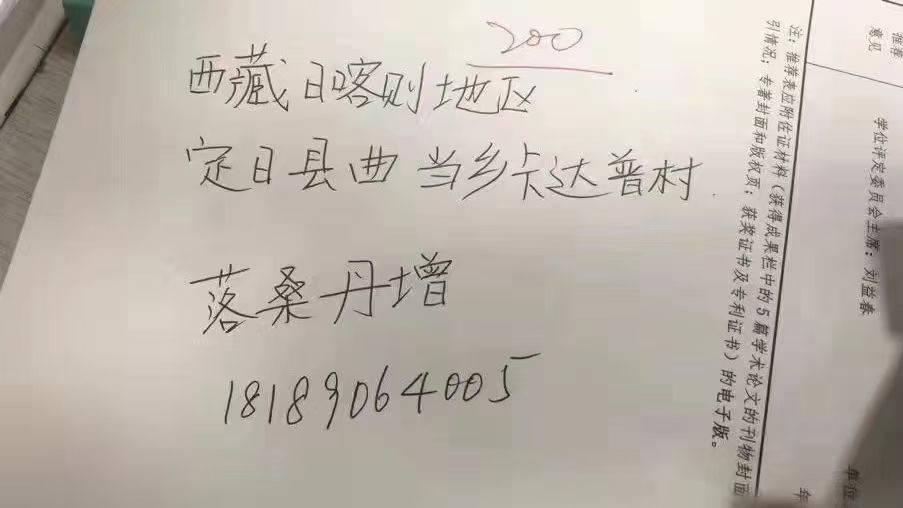 200
西藏日喀则地区
定日县曲当乡卡达普村
落桑丹增
18189064005
推荐
意见
学位评定委员会主席：刘益春
注：推荐表应附佐证材料（获得成果栏中的5篇学术论文的刊物封面
引情况；专著封面和版权页；获奖证书及专利证书）的电子版。
单位
年